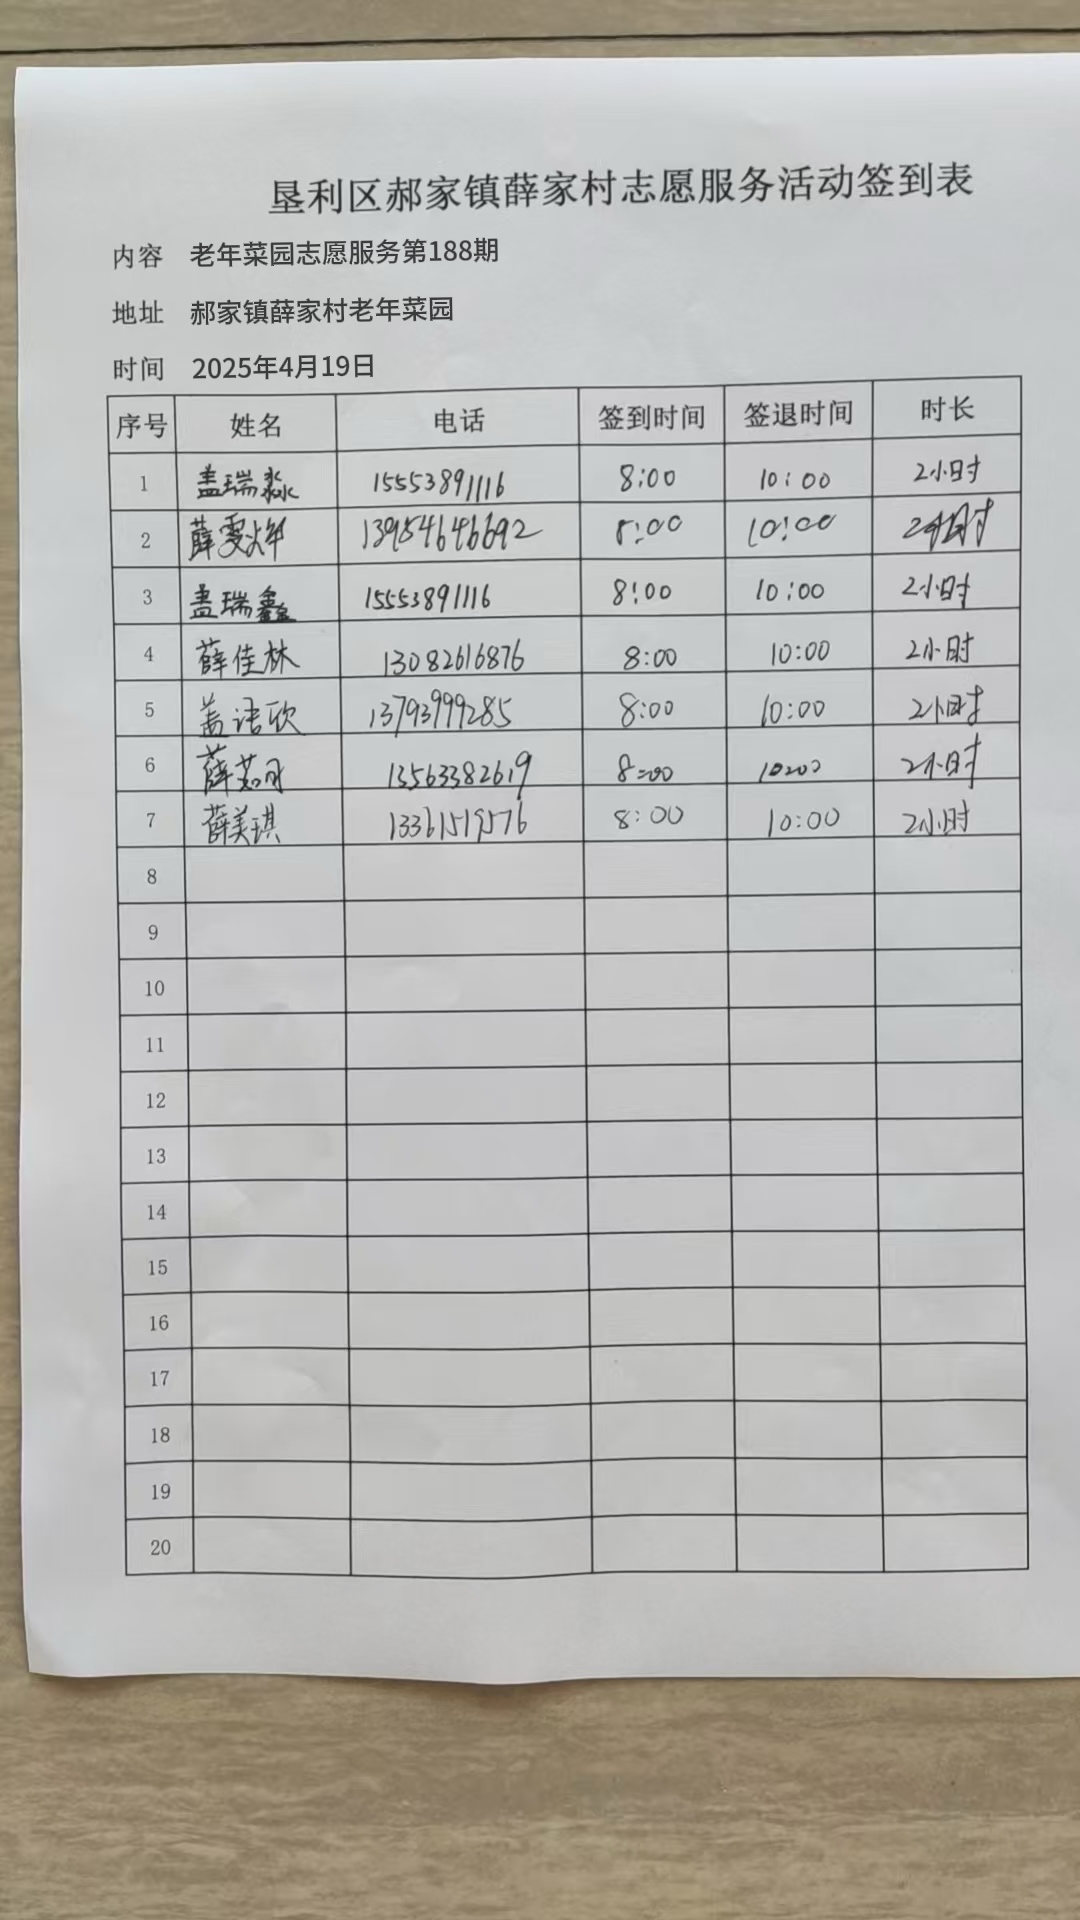 垦利区郝家镇薛家村志愿服务活动签到表
内容 老年菜园志愿服务第188期
地址 郝家镇薛家村老年菜园
时间 2025年4月19日
序号 姓名 电话 签到时间 签退时间 时长
1 盖瑞淼 15553891116 8:00 10:00 2小时
2 薛雯烨 13954646692 8:00 10:00 2小时
3 盖瑞鑫 15553891116 8:00 10:00 2小时
4 薛佳林 13082616876 8:00 10:00 2小时
5 盖语欣 13793999285 8:00 10:00 2小时
6 薛茹月 13563382619 8:00 10:00 2小时
7 薛美琪 13361519576 8:00 10:00 2小时
8
9
10
11
12
13
14
15
16
17
18
19
20